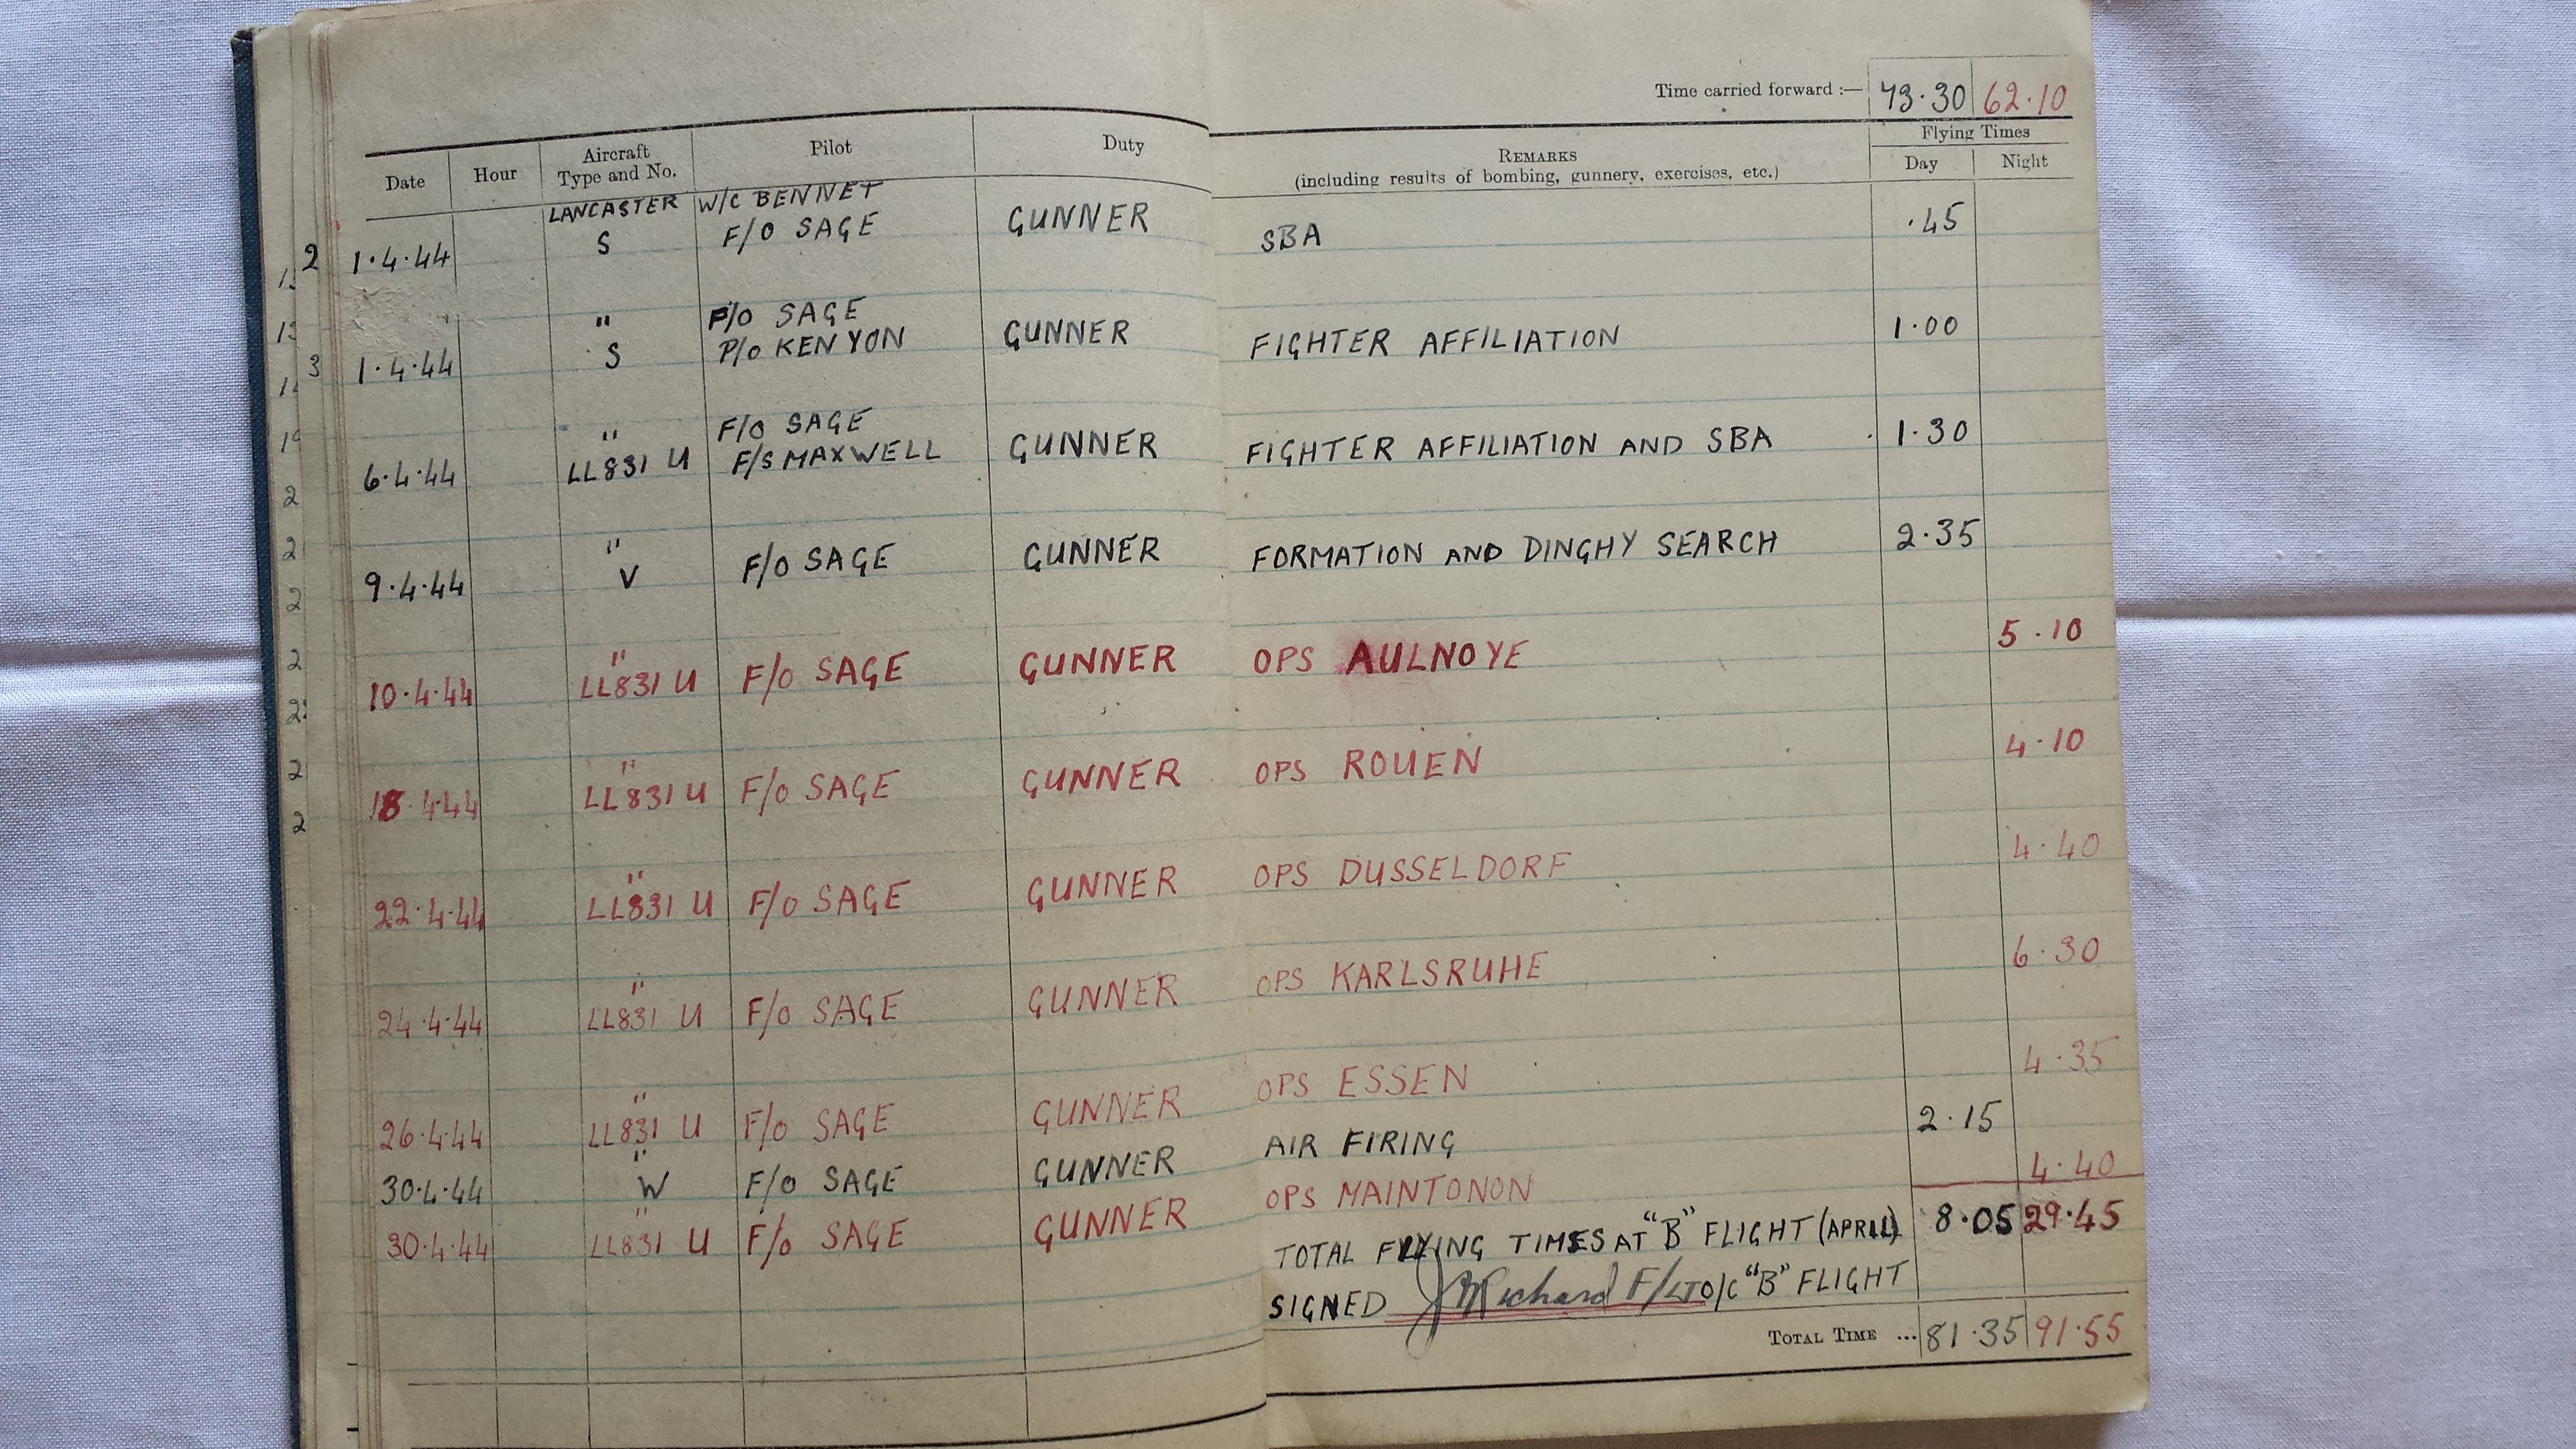 Time carried forward :— 73·30 62·10
Date Hour Aircraft Type and No. Pilot Duty REMARKS (including results of bombing, gunnery, exercises, etc.) Flying Times Day Night
LANCASTER W/C BENNET
2 1·4·44 S F/O SAGE GUNNER SBA ·45
" F/O SAGE
3 1·4·44 S P/O KENYON GUNNER FIGHTER AFFILIATION 1·00
" F/O SAGE
6·4·44 LL831 U F/S MAXWELL GUNNER FIGHTER AFFILIATION AND SBA 1·30
"
9·4·44 V F/O SAGE GUNNER FORMATION AND DINGHY SEARCH 2·35
"
10·4·44 LL831 U F/O SAGE GUNNER OPS AULNOYE 5·10
"
18·4·44 LL831 U F/O SAGE GUNNER OPS ROUEN 4·10
"
22·4·44 LL831 U F/O SAGE GUNNER OPS DUSSELDORF 4·40
"
24·4·44 LL831 U F/O SAGE GUNNER OPS KARLSRUHE 6·30
"
26·4·44 LL831 U F/O SAGE GUNNER OPS ESSEN 4·35
"
30·4·44 W F/O SAGE GUNNER AIR FIRING 2·15
"
30·4·44 LL831 U F/O SAGE GUNNER OPS MAINTONON 4·40
TOTAL FLYING TIMES AT "B" FLIGHT (APRIL) 8·05 29·45
SIGNED Richard F/LT O/C "B" FLIGHT
TOTAL TIME ... 81·35 91·55